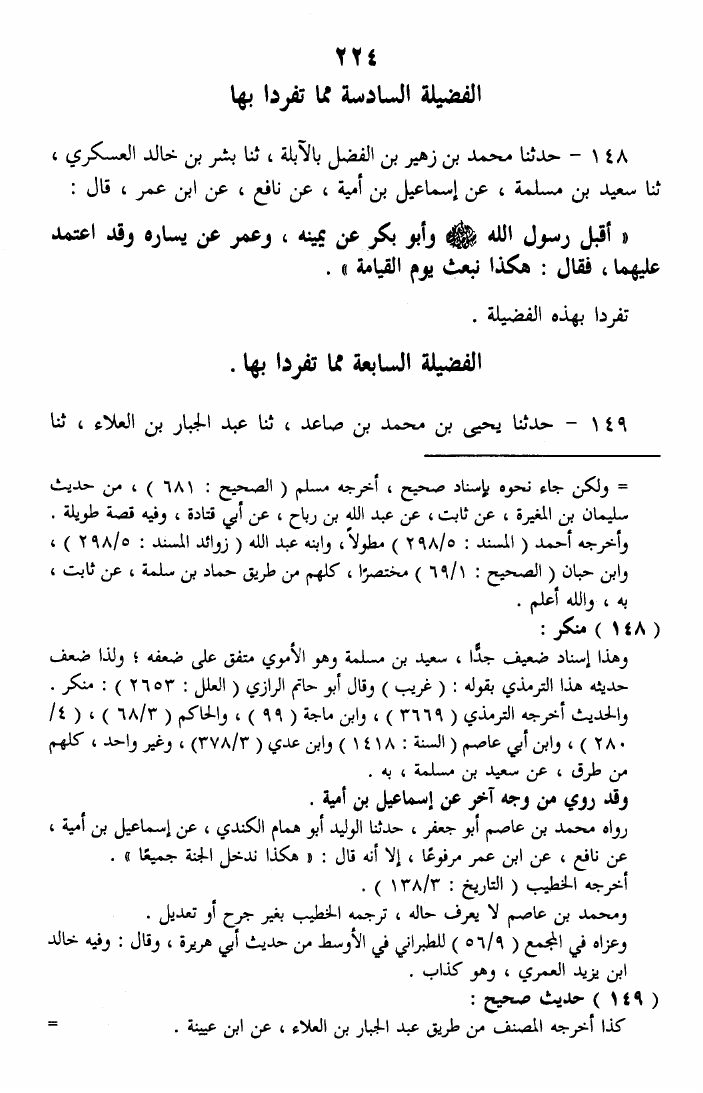 ٢٢٤
الفضيلة السادسة مما تفردا بها
١٤٨ – حدثنا محمد بن زهير بن الفضل بالأبلة ، ثنا بشر بن خالد العسكري ،
ثنا سعيد بن مسلمة ، عن إسماعيل بن أمية ، عن نافع ، عن ابن عمر ، قال :
« أقبل رسول الله ﷺ وأبو بكر عن يمينه ، وعمر عن يساره وقد اعتمد
عليهما ، فقال : هكذا نبعث يوم القيامة » .
تفردا بهذه الفضيلة .
الفضيلة السابعة مما تفردا بها .
١٤٩ – حدثنا يحيى بن محمد بن صاعد ، ثنا عبد الجبار بن العلاء ، ثنا
= ولكن جاء نحوه بإسناد صحيح ، أخرجه مسلم ( الصحيح : ٦٨١ ) ، من حديث
سليمان بن المغيرة ، عن ثابت ، عن عبد الله بن رباح ، عن أبي قتادة ، وفيه قصة طويلة .
وأخرجه أحمد ( المسند : ٢٩٨/٥ ) مطولاً ، وابنه عبد الله ( زوائد المسند : ٢٩٨/٥ ) ،
وابن حبان ( الصحيح : ٦٩/١ ) مختصرًا ، كلهم من طريق حماد بن سلمة ، عن ثابت ،
به ، والله أعلم .
( ١٤٨ ) منكر :
وهذا إسناد ضعيف جدًّا ، سعيد بن مسلمة وهو الأموي متفق على ضعفه ؛ ولذا ضعف
حديثه هذا الترمذي بقوله : ( غريب ) وقال أبو حاتم الرازي ( العلل : ٢٦٥٣ ) : منكر .
والحديث أخرجه الترمذي ( ٣٦٦٩ ) ، وابن ماجة ( ٩٩ ) ، والحاكم ( ٦٨/٣ ) ، ( ٤/
٢٨٠ ) ، وابن أبي عاصم ( السنة : ١٤١٨ ) وابن عدي ( ٣٧٨/٣ ) ، وغير واحد ، كلهم
من طرق ، عن سعيد بن مسلمة ، به .
وقد روي من وجه آخر عن إسماعيل بن أمية .
رواه محمد بن عاصم أبو جعفر ، حدثنا الوليد أبو همام الكندي ، عن إسماعيل بن أمية ،
عن نافع ، عن ابن عمر مرفوعًا ، إلا أنه قال : « هكذا ندخل الجنة جميعًا » .
أخرجه الخطيب ( التاريخ : ١٣٨/٣ ) .
ومحمد بن عاصم لا يعرف حاله ، ترجمه الخطيب بغير جرح أو تعديل .
وعزاه في المجمع ( ٥٦/٩ ) للطبراني في الأوسط من حديث أبي هريرة ، وقال : وفيه خالد
ابن يزيد العمري ، وهو كذاب .
( ١٤٩ ) حديث صحيح :
كذا أخرجه المصنف من طريق عبد الجبار بن العلاء ، عن ابن عيينة . =